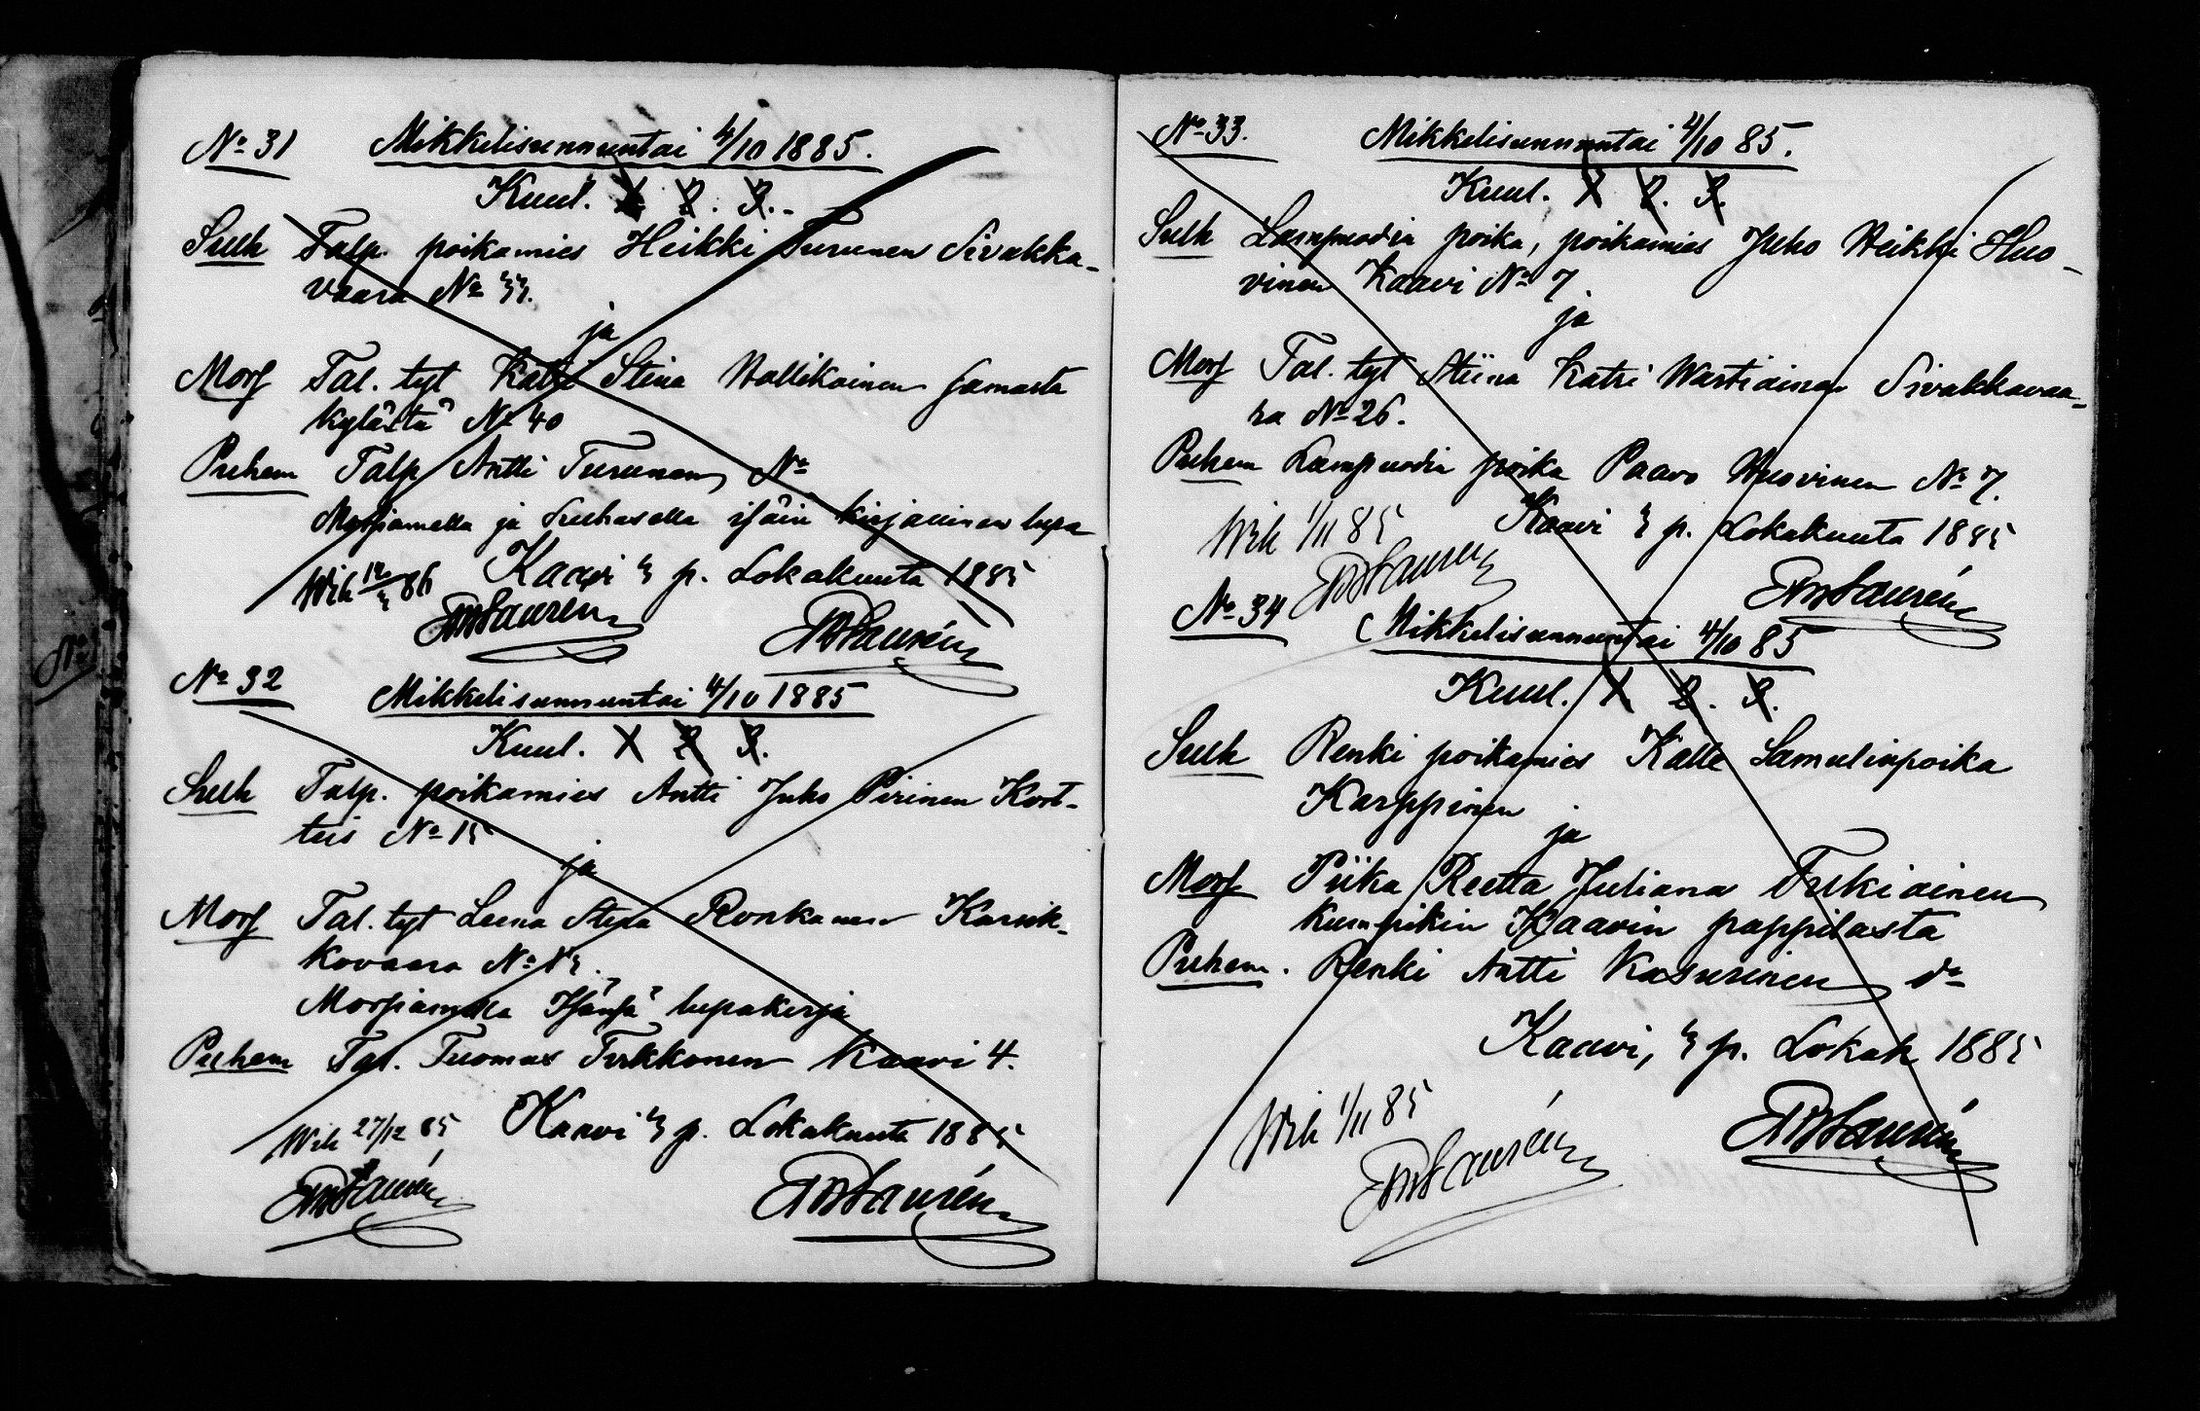 No 31 Mikkelisunnuntai 4/10 1885.
Kuul. 1. 2. 3.
Sulh Talp. poikamies Heikki Turunen Sivakka-
vaara No 33.
ja
Morf Tal. tyt Katri Stina Hallikainen samasta
kylästä No 40
Puhem Talp Antti Turunen No
Morsiamella ja Sulhasella isäin kirjallinen lupa
Kaavi 3 p. Lokakuuta 1885
Wih 86
No 32 Mikkelisunnuntai 4/10 1885
Kuul. 1 2 3.
Sulh Talp. poikamies Antti Juho Pirinen Kort-
teis No 15
ja
Morf Tal. tyt Leena Stina Ronkanen
kovaara No
Morsiamella Isänsä lupakirja
Puhem Tal. Tuomas Tirkkonen Kaavi 4.
Wih 27/12 85 Kaavi 3 p. Lokakuuta 1885
No 33. Mikkelisunnuntai 4/10 85.
Kuul. 1 2. 3.
Sulh Lampuodin poika, poikamies Juho Heikki Huo-
vinen Kaavi No 7
ja
Morf Tal. tyt Stiina Katri Wartiainen Sivakkavaa-
ra No 26.
Puhem Lampuodin poika Paavo Huovinen No 7.
Wih 1/11 85 Kaavi 3 p. Lokakuuta 1885
No 34 Mikkelisunnuntai 4/10 85
Kuul. 1 2. 3.
Sulh Renki poikamies Kalle Samulinpoika
Karppinen
ja
Morf Piika Reetta Juliana Tukiainen
kumpikin Kaavin pappilasta
Puhem. Renki Antti Kasurinen do
Kaavi, 3 p. Lokak 1885
Wih 1/11 85